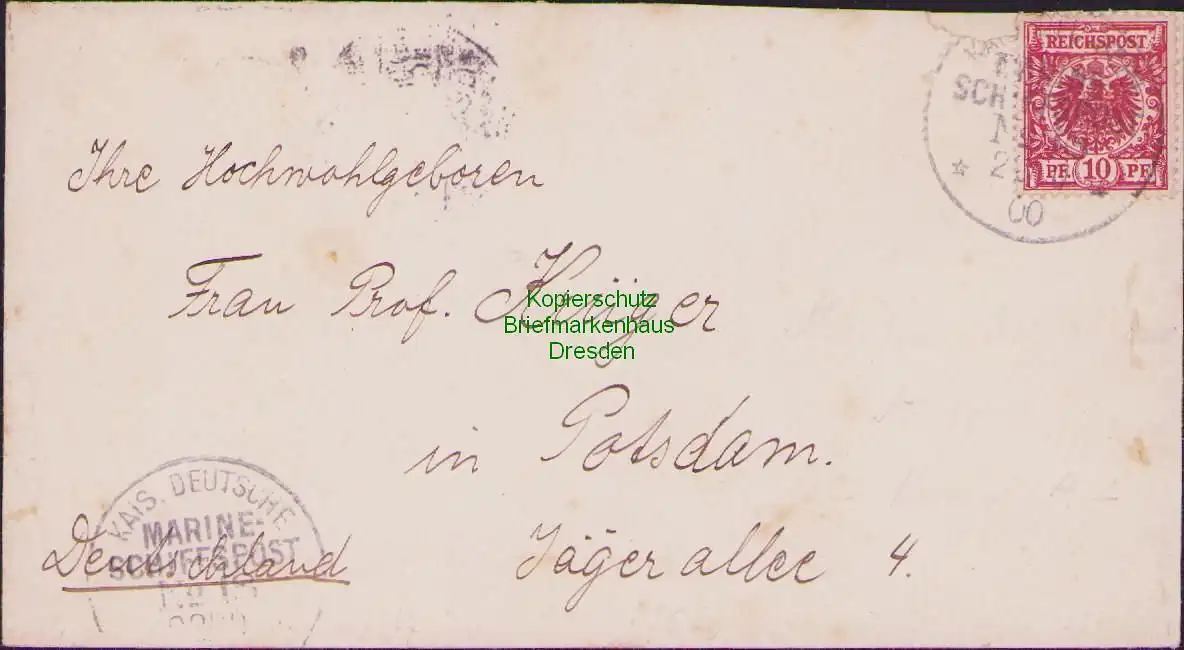 REICHSPOST
PF. 10 PF.
00
Ihre Hochwohlgeboren
Frau Prof. Krüger
Kopierschutz
Briefmarkenhaus
Dresden
in Potsdam.
Jäger allee 4.
Deutschland
KAIS. DEUTSCHE
MARINE-
SCHIFFSPOST